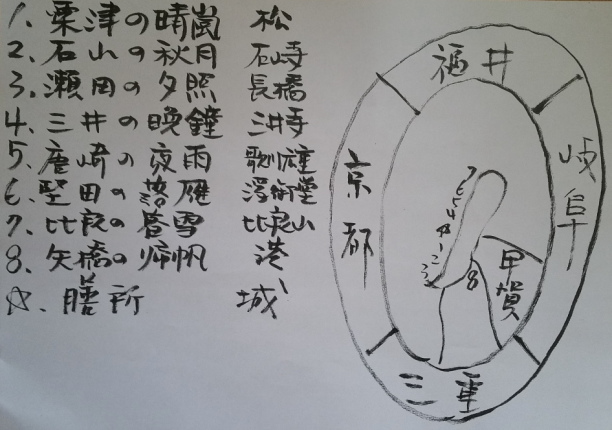 1. 栗津の晴嵐 松
2. 石山の秋月 石山寺
3. 瀬田の夕照 長橋
4. 三井の晩鐘 三井寺
5. 唐崎の夜雨 歌川広重
6. 堅田の落雁 浮御堂
7. 比良の暮雪 比良山
8. 矢橋の帰帆 港
☆. 膳所 城
福井
岐阜
京都
甲賀
三重
7
6
5
4
☆
1
2
3
8